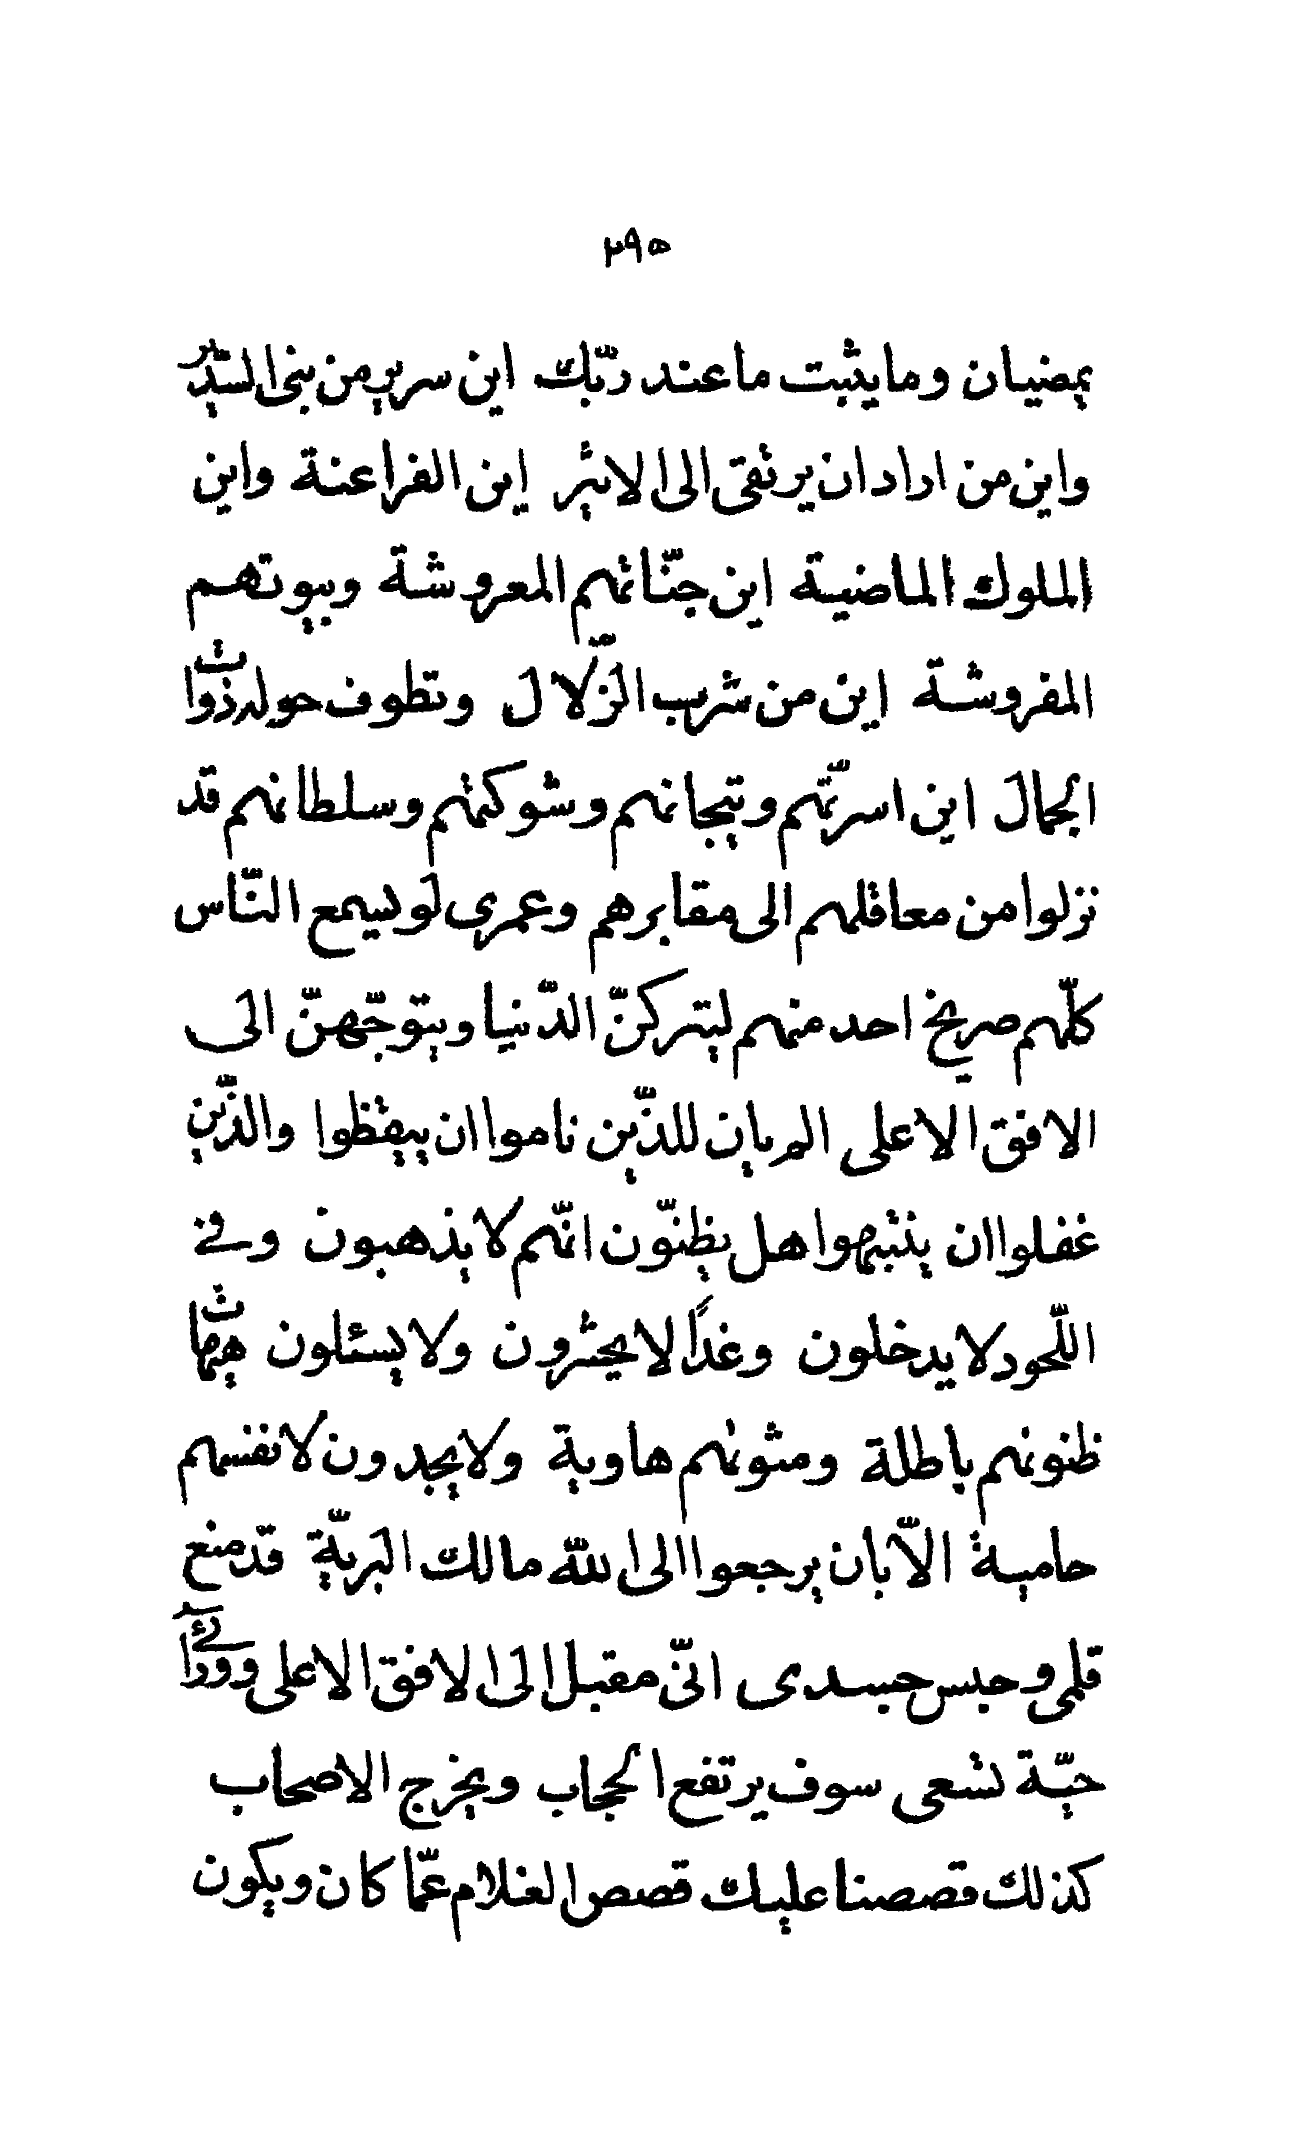 ٢٩٥
يمضيان وما يثبت ما عند ربّك اين سرير من بنى السّدير
واين من اراد ان يرتقى الى الاثير اين الفراعنة واين
الملوك الماضية اين جنّاتهم المعروشة وبيوتهم
المفروشة اين من شرب الزّلال وتطوف حوله ذوات
الجمال اين اسرّتهم وتيجانهم وشوكتهم وسلطانهم قد
نزلوا من معاقلهم الى مقابرهم وعمرى لو يسمع النّاس
كلّهم صريخ احد منهم ليتركنّ الدّنيا ويتوجّهنّ الى
الافق الاعلى الم يان للذّين ناموا ان ييقظوا والذّين
غفلوا ان ينتبهوا هل يظنّون انّهم لا يذهبون وفى
اللّحود لا يدخلون وغدًا لا يحشرون ولا يسئلون هيهات
ظنونهم باطلة ومثونهم هاوية ولا يجدون لانفسهم
حامية الّا بان يرجعوا الى الله مالك البريّة قد منع
قلمى وحبس جسدى انّى مقبل الى الافق الاعلى وورائى
حيّة تسعى سوف يرتفع الحجاب ويخرج الاصحاب
كذلك قصصنا عليك قصص الغلام عمّا كان ويكون